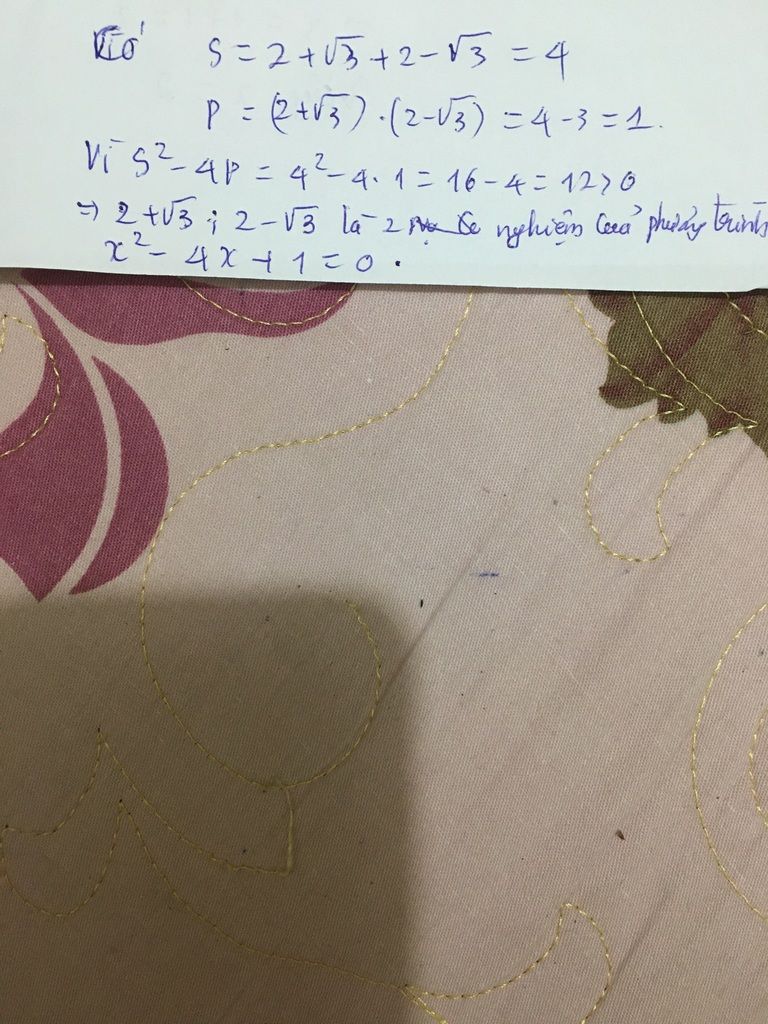 Có S = 2 + √3 + 2 - √3 = 4
P = (2+√3) . (2-√3) = 4 - 3 = 1.
Vì S² - 4P = 4² - 4. 1 = 16 - 4 = 12 > 0
⇒ 2 + √3 ; 2 - √3 là 2 nghiệm của phương trình
x² - 4x + 1 = 0 .